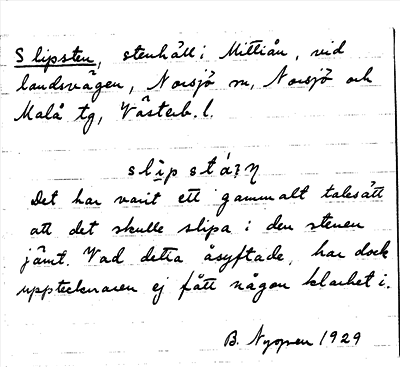 Slipsten, stenhäll i Mittiån, vid
landsvägen, Norsjö sn, Norsjö och
Malå tg, Västerb. l.
Det har varit ett gammalt talesätt
att det skulle slipa i den stenen
jämt. Vad detta åsyftade, har dock
upptecknaren ej fått någon klarhet i.
B. Nygren 1929